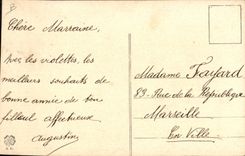 Chère Marraine,
Avec les violettes, les
meilleurs souhaits de
bonne année de ton
filleul affectueux
Augustin
Madame Fayard
89 Rue de la République
Marseille
En Ville